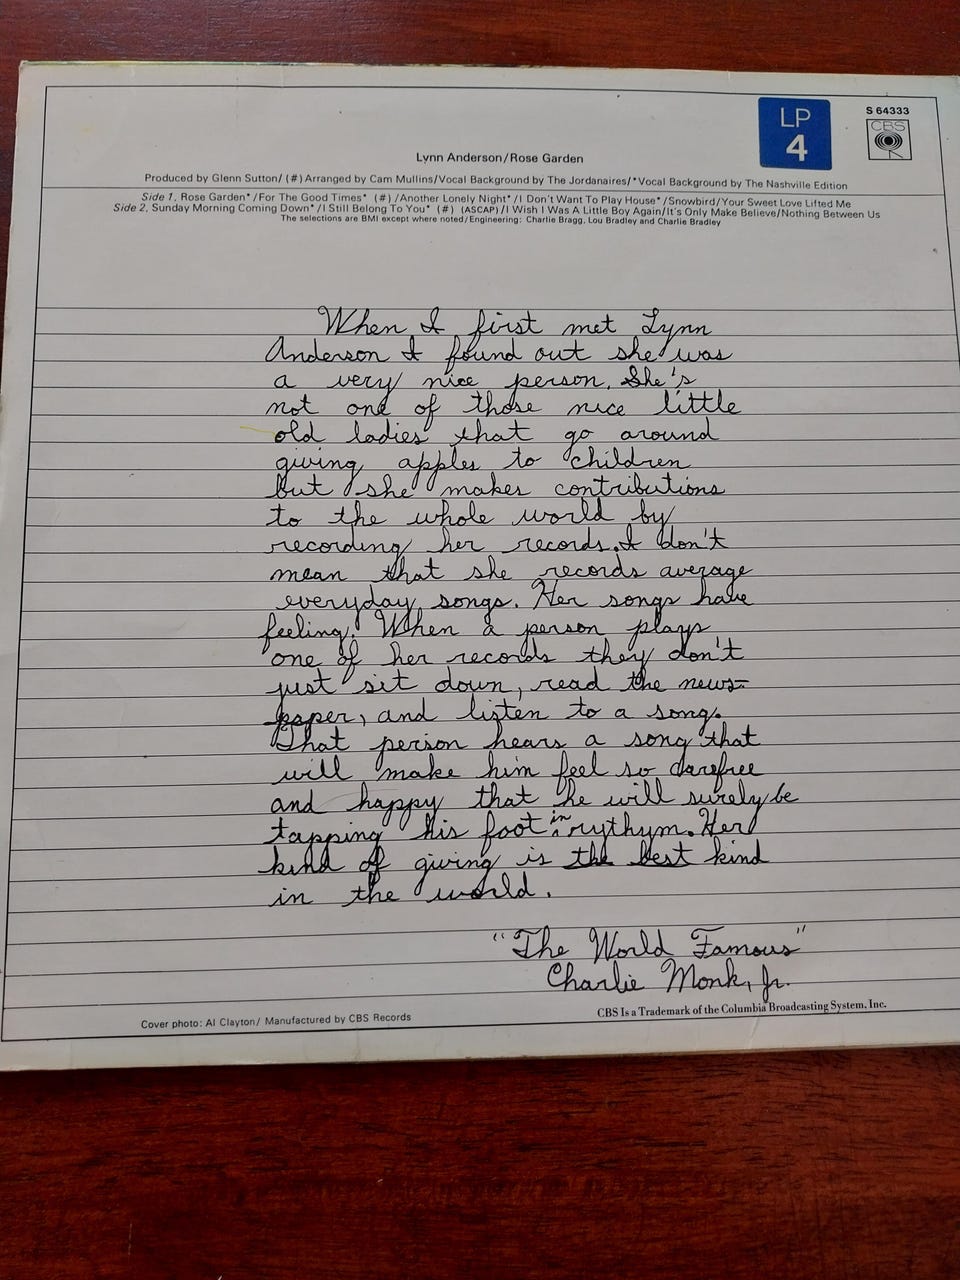 LP
4
S 64333
CBS
Lynn Anderson/Rose Garden
Produced by Glenn Sutton/ (#) Arranged by Cam Mullins/Vocal Background by The Jordanaires/*Vocal Background by The Nashville Edition
Side 1, Rose Garden*/For The Good Times* (#) /Another Lonely Night*/I Don't Want To Play House*/Snowbird/Your Sweet Love Lifted Me
Side 2, Sunday Morning Coming Down*/I Still Belong To You* (#) (ASCAP)/I Wish I Was A Little Boy Again/It's Only Make Believe/Nothing Between Us
The selections are BMI except where noted/Engineering: Charlie Bragg, Lou Bradley and Charlie Bradley
When I first met Lynn
Anderson I found out she was
a very nice person. She's
not one of those nice little
old ladies that go around
giving apples to children
but she makes contributions
to the whole world by
recording her records. I don't
mean that she records average
everyday songs. Her songs have
feeling. When a person plays
one of her records they don't
just sit down, read the news-
paper, and listen to a song.
That person hears a song that
will make him feel so carefree
and happy that he will surely be
tapping his foot in rythym. Her
kind of giving is the best kind
in the world.
"The World Famous"
Charlie Monk, Jr.
CBS Is a Trademark of the Columbia Broadcasting System, Inc.
Cover photo: Al Clayton/ Manufactured by CBS Records